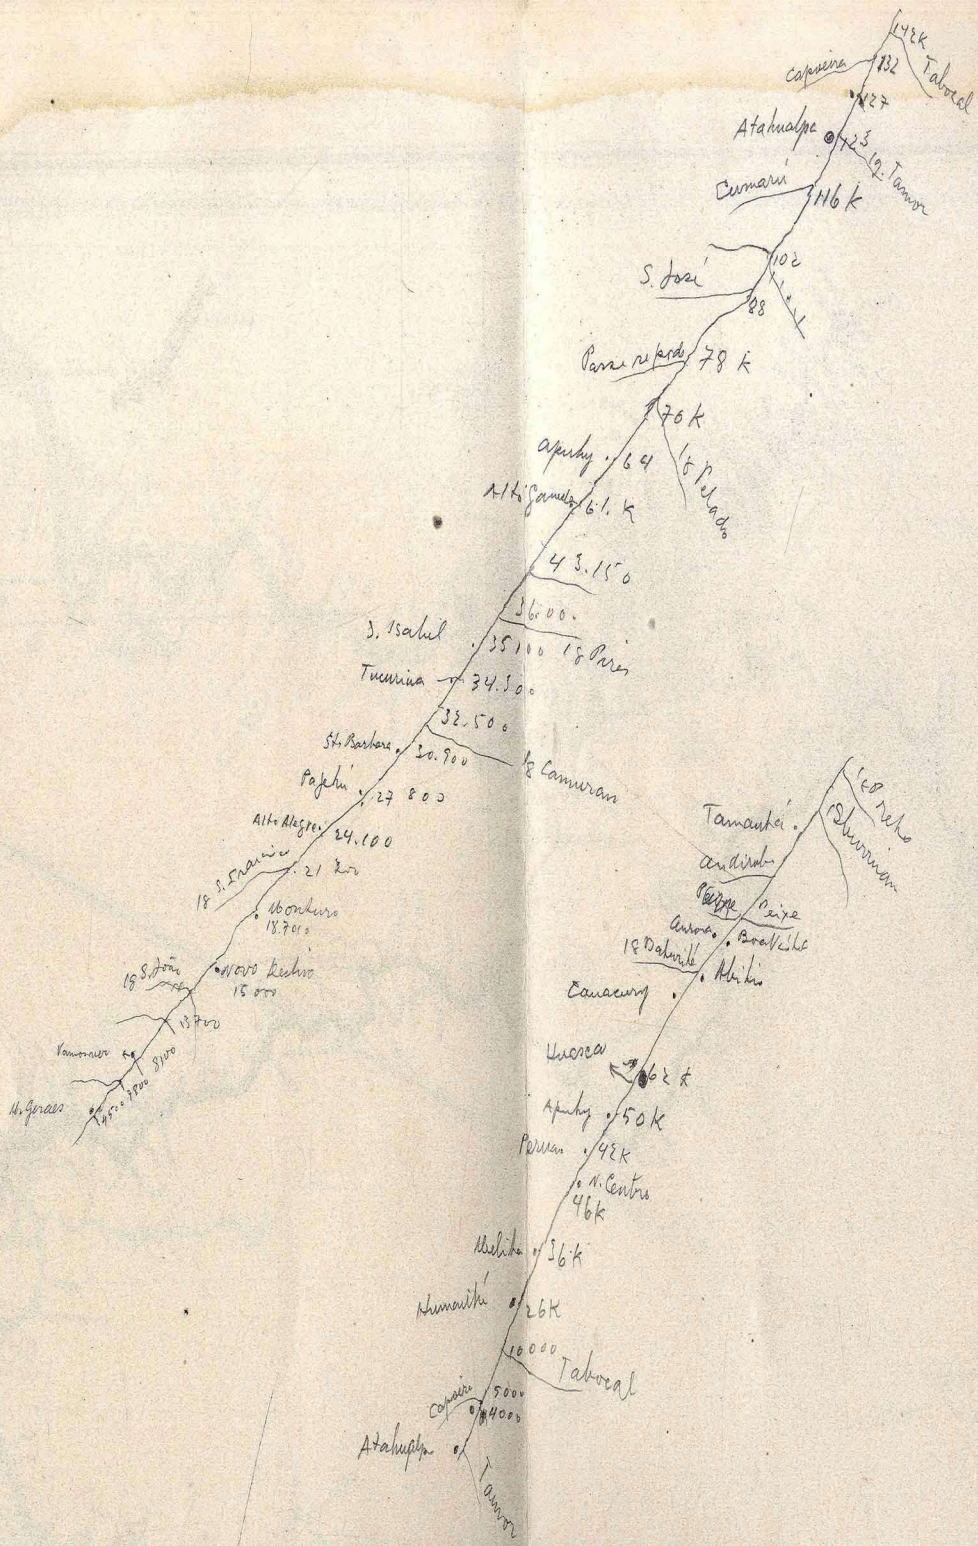 142K
Tabocal
Capoeira
132
127
Atahualpa
123
Ig. Tamor
Cumarú
116 K
102
S. José
88
78 K
70 K
Apuhy
64
Ig Pelado
61. K
43.150
36.00.
S. Isabel
35100
Ig Pires
Tucuriua
34.300
32.500
Sta Barbara
30.900
Ig Camuran
Pajehú
27 800
Alto Alegre
24.100
Ig S. Francisco
21 200
Monturo
18.700
Novo Recheio
15 000
Ig S. João
13700
8100
7800
M. Geraes
4500
Ig Preto
Tamanká
Andiroba
Peixe
Aurora
Boa Vista
Ig Baturité
Abikis
Canacury
Huasca
62 K
Apuhy
50K
Peruas
42K
N. Centro
46K
36K
Humaitá
26K
10000
Tabocal
Capoeira
5000
4000
Atahualpa
Tamor